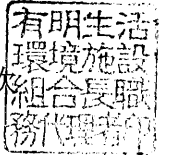 有明生活
環境施設
組合長職
務代理者印